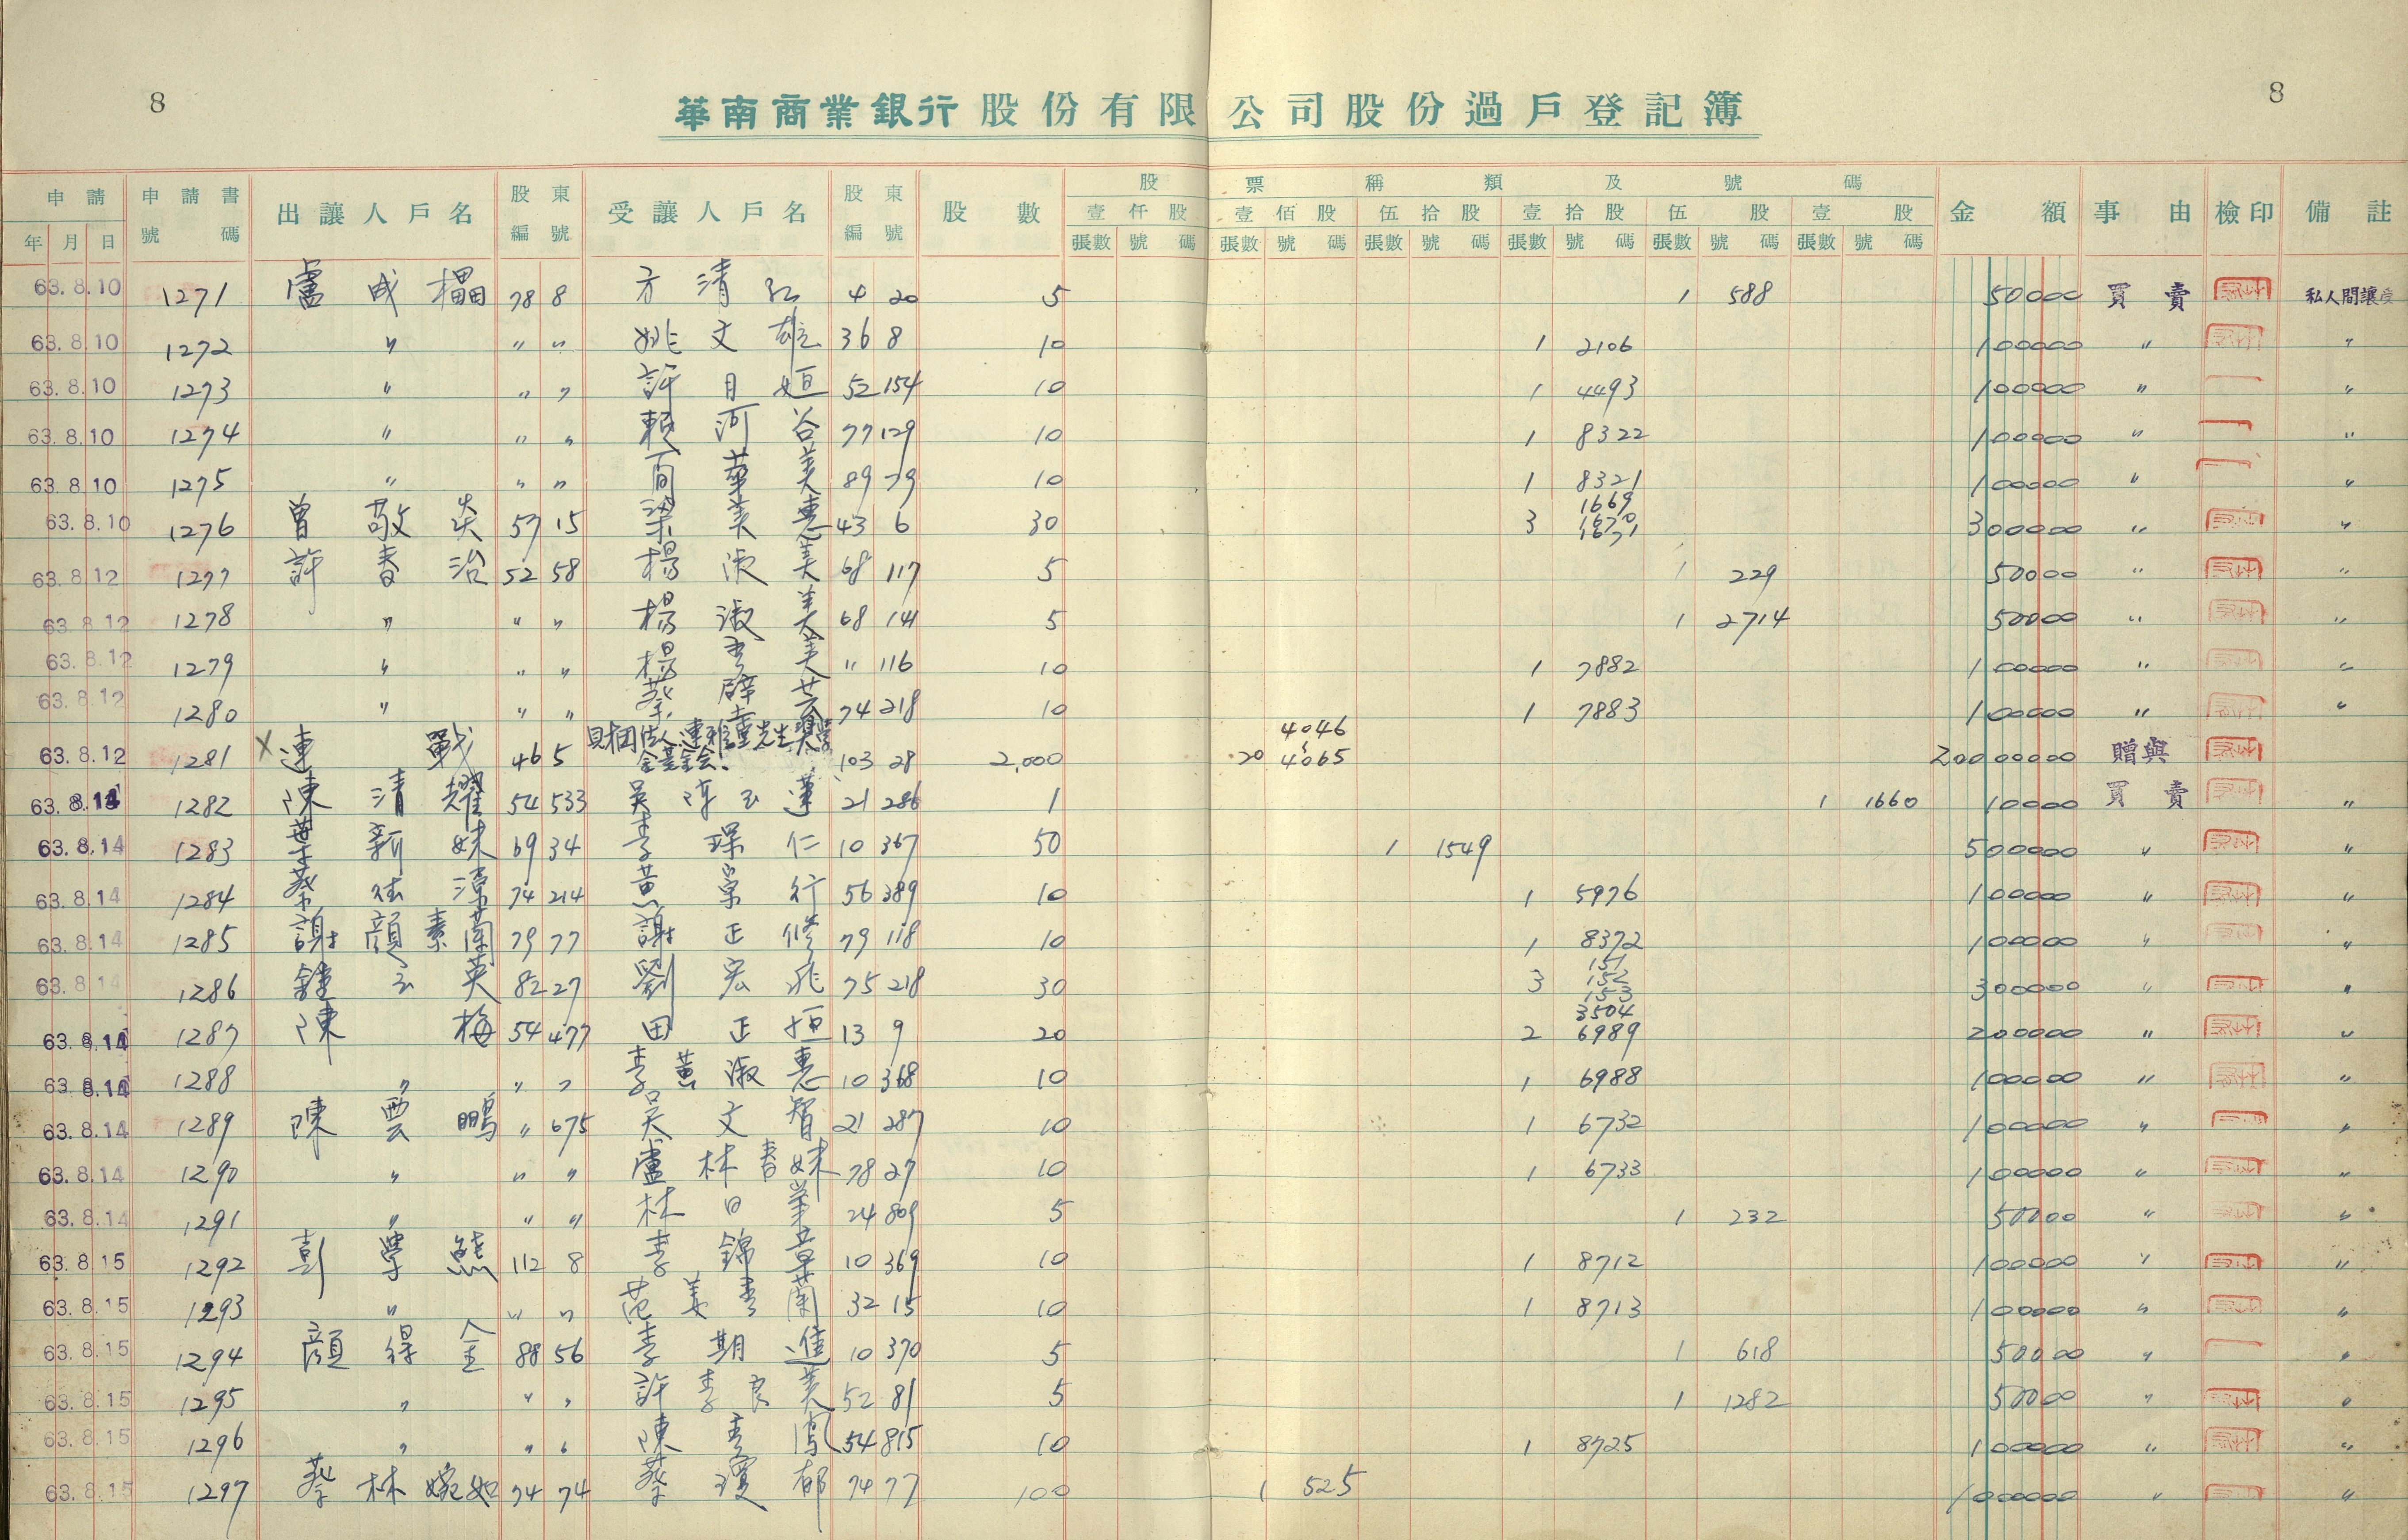 8 8
華南商業銀行股份有限公司股份過戶登記簿
申請 申請書 出讓人戶名 股東 受讓人戶名 股東 股數 股票種類及號碼 金額 事由 檢印 備註
年 月 日 號碼 編號 編號 壹仟股 壹佰股 伍拾股 壹拾股 伍股 壹股
張數 號碼 張數 號碼 張數 號碼 張數 號碼 張數 號碼 張數 號碼
63.8.10 1271 盧成 78 8 方清 4 20 5 1 588 50000 買賣 私人間讓受
63.8.10 1272 〃 〃 〃 姚文雄 36 8 10 1 2106 100000 〃 〃
63.8.10 1273 〃 〃 〃 許月姮 52 154 10 1 4493 100000 〃 〃
63.8.10 1274 〃 〃 〃 賴河谷 77 129 10 1 8322 100000 〃 〃
63.8.10 1275 〃 〃 〃 華美 89 79 10 1 8321 100000 〃 〃
63.8.10 1276 曾敬炎 57 15 梁美惠 43 6 30 3 1669 1670 1671 300000 〃 〃
63.8.12 1277 許春治 52 58 楊淑美 68 117 5 1 229 50000 〃 〃
63.8.12 1278 〃 〃 〃 楊淑美 68 141 5 1 2714 50000 〃 〃
63.8.12 1279 〃 〃 〃 楊秀美 〃 116 10 1 7882 100000 〃 〃
63.8.12 1280 〃 〃 〃 蔡 74 218 10 1 7883 100000 〃 〃
63.8.12 1281 X 連戰 46 5 財團法人連雅堂先生獎學金基金会 103 28 2,000 20 4046 ~ 4065 20000000 贈與
1282 陳清耀 54 533 吳 21 286 1 1 1660 10000 買賣 〃
63.8.14 1283 葉新妹 69 34 李環仁 10 367 50 1 1549 500000 〃 〃
63.8.14 1284 蔡 74 214 黃宗行 56 389 10 1 5976 100000 〃 〃
63.8.14 1285 謝顏素蘭 79 77 謝正修 79 118 10 1 8372 100000 〃 〃
63.8.14 1286 鍾玉英 82 27 劉宏 75 218 30 3 151 152 153 300000 〃 〃
63.8.14 1287 陳梅 54 477 田正 13 9 20 2 3504 6989 200000 〃 〃
63.8.14 1288 〃 〃 〃 李黃淑惠 10 368 10 1 6988 100000 〃 〃
63.8.14 1289 陳雲鵬 〃 675 吳文智 21 287 10 1 6732 100000 〃 〃
63.8.14 1290 〃 〃 〃 盧林春妹 78 27 10 1 6733 100000 〃 〃
63.8.14 1291 〃 〃 〃 林日 24 809 5 1 232 50000 〃 〃
63.8.15 1292 彭學 112 8 李錦章 10 369 10 1 8712 100000 〃 〃
63.8.15 1293 〃 〃 〃 范姜秀蘭 32 15 10 1 8713 100000 〃 〃
63.8.15 1294 顏得金 88 56 李期進 10 370 5 1 618 50000 〃 〃
63.8.15 1295 〃 〃 〃 許李良美 52 81 5 1 1282 50000 〃 〃
63.8.15 1296 〃 〃 〃 陳秀鳳 54 815 10 1 8725 100000 〃 〃
63.8.15 1297 蔡林婉如 74 74 蔡瓊郁 74 77 100 1 525 1000000 〃 〃